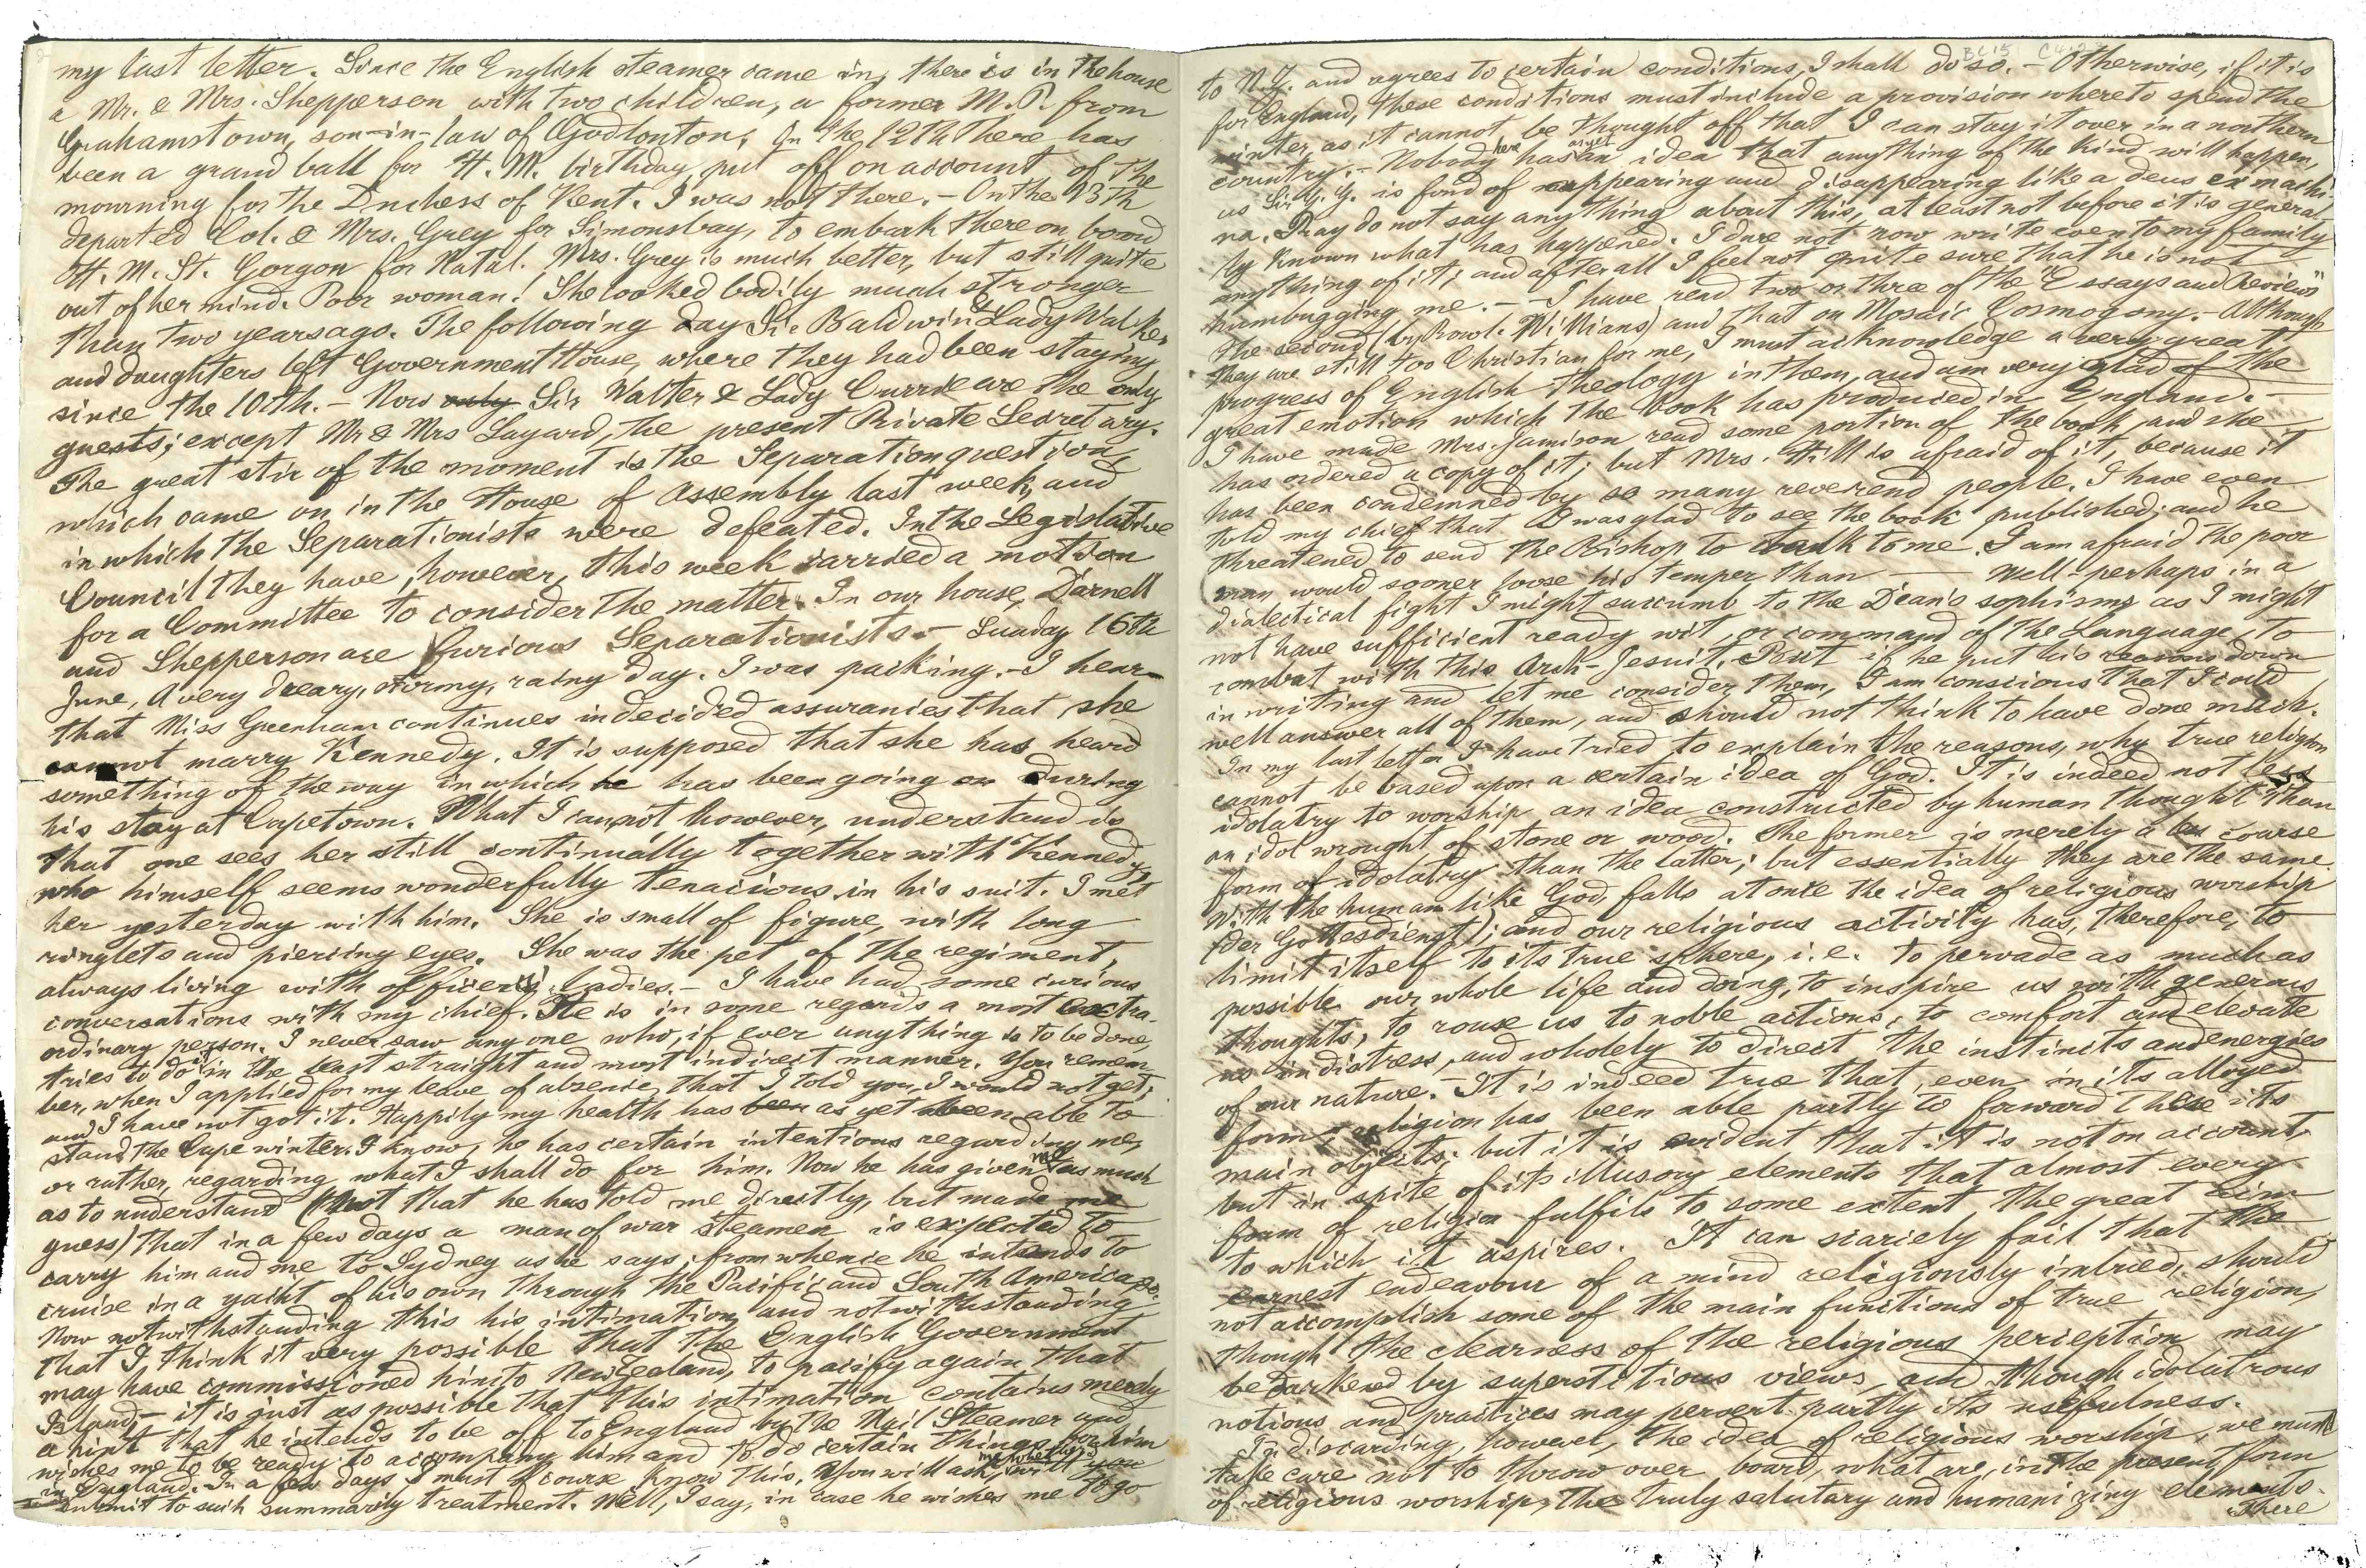 my last letter. Since the English steamer came in, there is in the house
a Mr. & Mrs. Shepperson with two children, a former M.P. from
Grahamstown, son-in-law of Godlonton. On the 12th there has
been a grand ball for H.M. birthday, put off on account of the
mourning for the Duchess of Kent. I was not there. – On the 13th
departed Col. & Mrs. Grey for Simonsbay, to embark there on board
H.M. St. Gorgon for Natal. Mrs. Grey is much better, but still quite
out of her mind. Poor woman! She looked bodily much stronger
than two years ago. The following day Sir Baldwin & Lady Walker
and daughters left Government House, where they had been staying
since the 10th. – Now only Sir Walter & Lady Currie are the only
guests; except Mr & Mrs Layard, the present Private Secretary.
The great stir of the moment is the Separation question,
which came on in the House of Assembly last week, and
in which the Separationists were defeated. In the Legislative
Council they have, however, this week carried a motion
for a Committee to consider the matter. In our house, Darnell
and Shepperson are furious Separationists. – Sunday 16th
June, A very dreary, stormy, rainy day. I was packing. – I hear
that Miss Greenham continues in decided assurances that she
cannot marry Kennedy. It is supposed that she has heard
something of the way in which he has been going on during
his stay at Capetown. What I cannot however, understand is
that one sees her still continually together with Kennedy,
who himself seems wonderfully tenacious in his suit. I met
her yesterday with him. She is small of figure, with long
ringlets and piercing eyes. She was the pet of the regiment,
always living with officers' ladies. – I have had some curious
conversations with my chief. He is in some regards a most extra-
ordinary person. I never saw any one who, if ever anything is to be done,
tries to do it in the least straight and most indirect manner. You remem-
ber, when I applied for my leave of absence, that I told you, I would not get;
and I have not got it. Happily my health has been as yet been able to
stand the Cape winter. I know, he has certain intentions regarding me,
or rather, regarding what I shall do for him. Now he has given me as much
as to understand (not that he has told me directly, but made me
guess) that in a few days a man of war steamer is expected to
carry him and me to Sydney as he says; from whence he intends to
cruise in a yacht of his own through the Pacific and South America &c.
Now notwithstanding this his intimation, and notwithstanding
that I think it very possible that the English Government
may have commissioned him to New Zealand, to pacify again that
Island, – it is just as possible that this intimation contains merely
a hint that he intends to be off to England by the Mail Steamer and
wishes me to be ready to accompany him and to do certain things for him
in England. In a few days I must of course know this. You will ask, me whether I will you
submit to such summarily treatment. Well, I say, in case he wishes me to go
to N.Z. and agrees to certain conditions, I shall do so. – Otherwise, if it is
for England, these conditions must include a provision where to spend the
winter, as it cannot be thought off that I can stay it over in a northern
country. – Nobody here has as yet an idea that anything of the kind will happen,
as Sir G.G. is fond of appearing and disappearing like a deus ex machi-
na. Pray do not say anything about this, at least not before it is general-
ly known what has happened. I dare not now write even to my family
anything of it; and after all I feel not quite sure that he is not
humbugging me. – – I have read two or three of the "Essays and Reviews"
the second (by Rowl. Willians) and that on Mosaic Cosmogony. – Although
they are still too Christian for me, I must acknowledge a very great
progress of English theology in them, and am very glad of the
great emotion which the book has produced in England. –
I have made Mrs. Jamison read some portion of the book, and she
has ordered a copy of it; but Mrs. Hill is afraid of it, because it
has been condemned by so many reverend people. I have even
told my chief that I was glad to see the book published; and he
threatened to send the Bishop to talk to me. I am afraid the poor
man would sooner loose his temper than —— Well – perhaps in a
dialectical fight I might succumb to the Dean's sophisms as I might
not have sufficient ready wit, or command of the Language, to
combat with this Arch-Jesuit. But if he put his reasons down
in writing and let me consider them, I am conscious that I could
well answer all of them, and should not think to have done much.
In my last letter I have tried to explain the reasons, why true religion
cannot be based upon a certain idea of God. It is indeed not less
idolatry to worship an idea constructed by human thought than
an idol wrought of stone or wood. The former is merely a less coarse
form of idolatry than the latter; but essentially they are the same.
With the human like God, falls at once the idea of religious worship
(der Gottesdienst); and our religious activity has, therefore, to
limit itself to its true sphere, i.e. to pervade as much as
possible our whole life and doing, to inspire us with generous
thoughts, to rouse us to noble actions, to comfort and elevate
us in distress, and wholely to direct the instincts and energies
of our nature. – It is indeed true that, even in its alloyed
form, religion has been able partly to forward these its
main objects; but it is evident that it is not on account,
but in spite of its illusory elements that almost every
form of religion fulfils to some extent, the great aim
to which it aspires. It can scarcely fail that the
earnest endeavour of a mind religiously imbued, should
not accomplish some of the main functions of true religion,
though the clearness of the religious perception may
be darkened by superstitious views, and though idolatrous
notions and practices may pervert partly its usefulness.
In discarding, however, the idea of religious worship, we must
take care not to throw over board, what are, in the present form
of religious worship, the truly salutary and humanizing elements.
There